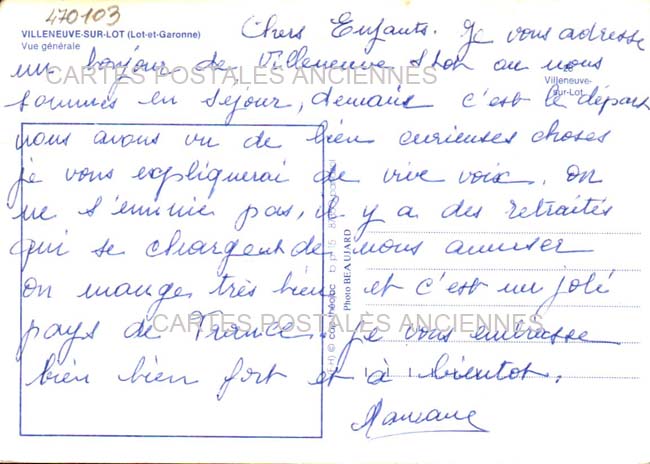 470103
VILLENEUVE-SUR-LOT (Lot-et-Garonne)
Vue générale
Chers Enfants. Je vous adresse
un bonjour de Villeneuve s Lot ou nous
CARTES POSTALES ANCIENNES
Villeneuve-
sur-Lot
sommes en séjour, demain c'est le départ
nous avons vu de bien curieuses choses
je vous expliquerai de vive voix. on
ne s'ennuie pas, il y a des retraités
qui se chargent de nous amuser
on mange très bien et c'est un joli
pays de France. je vous embrasse
CARTES POSTALES ANCIENNES
bien bien fort et à bientot.
Photo BEAUJARD